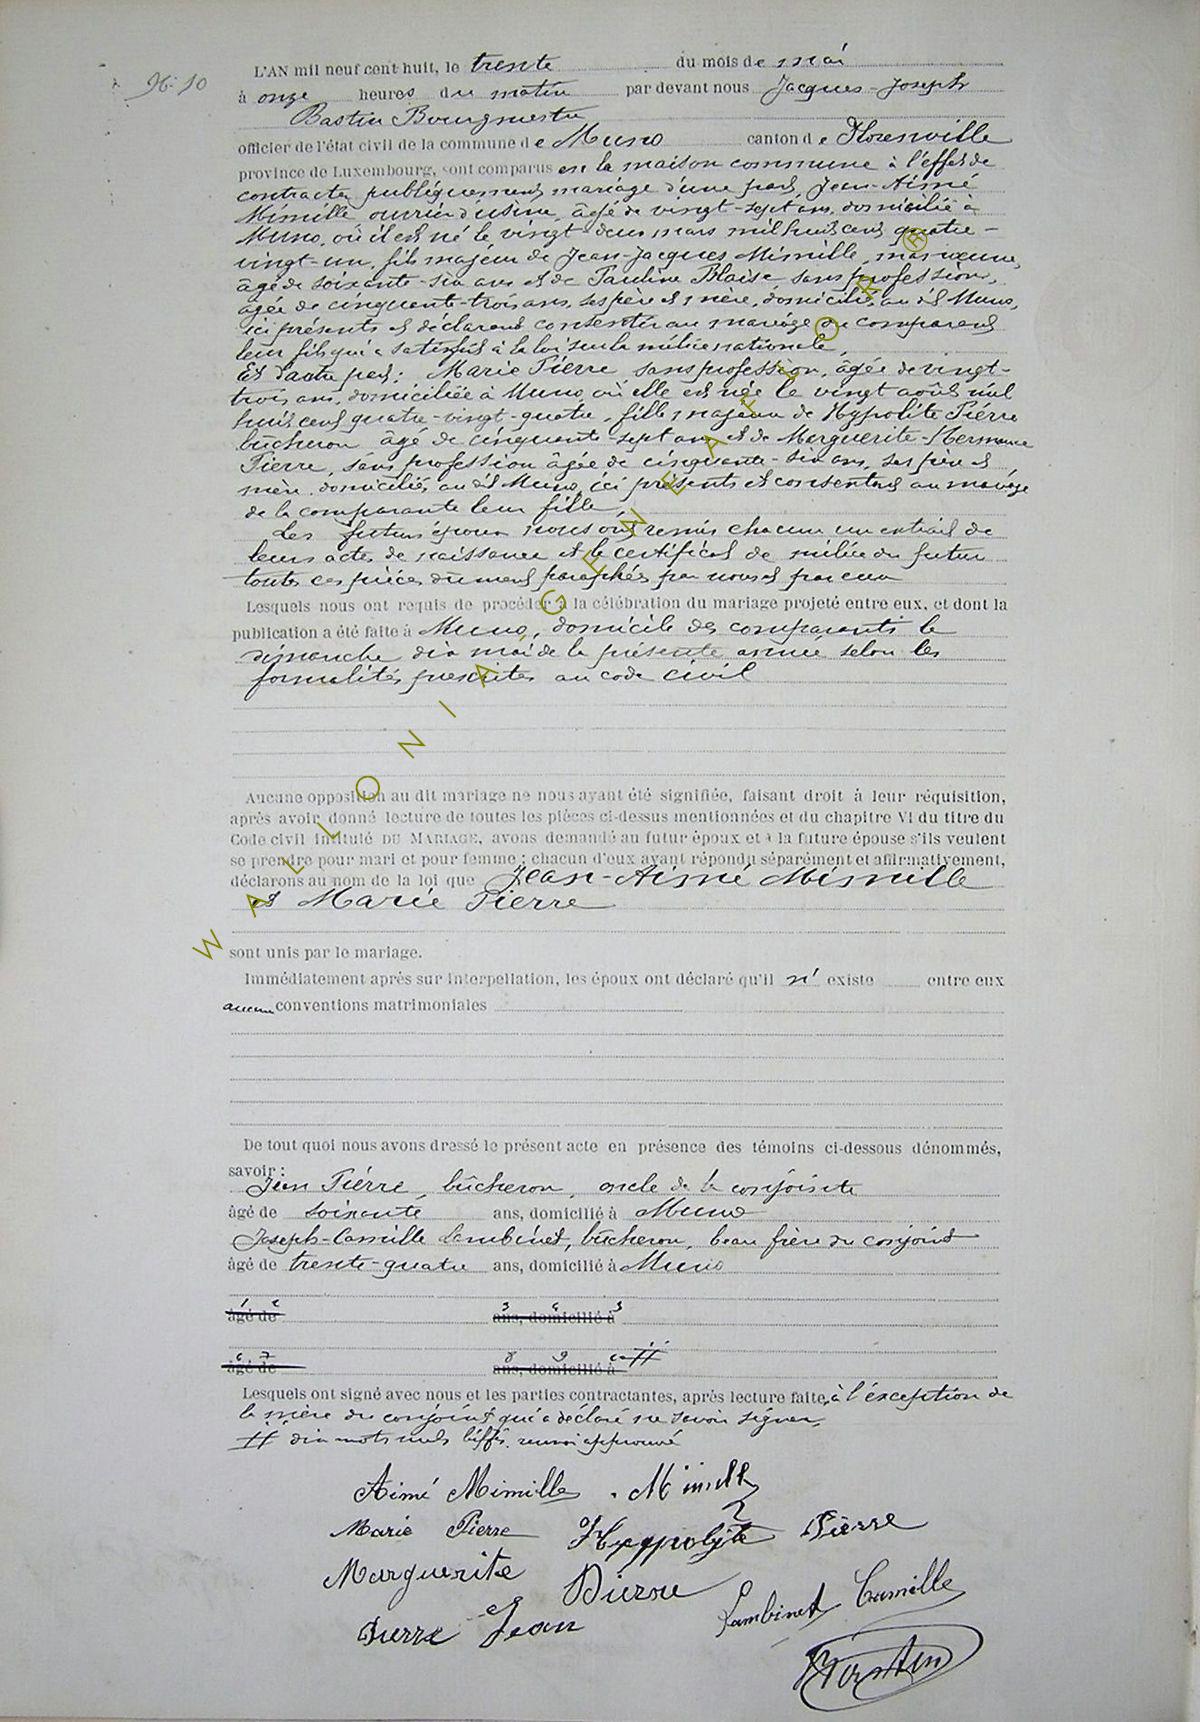 N° 10
L'AN mil neuf cent huit, le trente du mois de mai
à onze heures du matin par devant nous Jacques-Joseph
Bastin Bourgmestre
officier de l'état civil de la commune de Muno canton de Florenville
province de Luxembourg, sont comparus en la maison commune à l'effet de
contracter publiquement mariage d'une part, Jean-Aimé
Mimille ouvrier d'usine, âgé de vingt-sept ans, domicilié à
Muno, où il est né le vingt-deux mars mil huit cent quatre-
vingt-un, fils majeur de Jean-Jacques Mimille, manœuvre,
âgé de soixante-six ans et de Pauline Blaise sans profession,
agée de cinquante-trois ans, ses père et mère, domiciliés au dit Muno,
ici présents et déclarant consentir au mariage du comparant
leur fils qui a satisfait à la loi sur la milice nationale,
Et d'autre part: Marie Pierre sans profession, âgée de vingt-
trois ans, domiciliée à Muno où elle est née le vingt août mil
huit cent quatre-vingt-quatre, fille majeure de Hypolite Pierre
bûcheron âgé de cinquante-sept ans et de Marguerite-Hermance
Pierre, sans profession âgée de cinquante-six ans, ses père et
mère, domiciliés au dit Muno, ici présents et consentant au mariage
de la comparante leur fille,
Les futurs époux nous ont remis chacun un extrait de
leurs actes de naissance et le certificat de milice du futur
toutes ces pièces dument paraphées par nous et par eux
Lesquels nous ont requis de procéder à la célébration du mariage projeté entre eux, et dont la
publication a été faite à Muno, domicile des comparants le
dimanche dix mai de la présente année selon les
formalités prescrites au code civil
Aucune opposition au dit mariage ne nous ayant été signifiée, faisant droit à leur réquisition,
après avoir donné lecture de toutes les pièces ci-dessus mentionnées et du chapitre VI du titre du
Code civil intitulé DU MARIAGE, avons demandé au futur époux et à la future épouse s'ils veulent
se prendre pour mari et pour femme ; chacun d'eux ayant répondu séparément et affirmativement,
déclarons au nom de la loi que Jean-Aimé Mimille
et Marie Pierre
sont unis par le mariage.
Immédiatement après sur interpellation, les époux ont déclaré qu'il n' existe entre eux
aucune conventions matrimoniales
De tout quoi nous avons dressé le présent acte en présence des témoins ci-dessous dénommés,
savoir :
Jean Pierre, bûcheron, oncle de la conjointe
âgé de soixante ans, domicilié à Muno
Joseph-Camille Lambinet, bûcheron, beau frère du conjoint
âgé de trente-quatre ans, domicilié à Muno
1 2 3 4 5
âgé de ans, domicilié à
6 7 8 9 10 #
âgé de ans, domicilié à
Lesquels ont signé avec nous et les parties contractantes, après lecture faite, à l'exception de
la mère du conjoint qui a déclaré ne savoir signer,
# dix mots nuls biffés, renvoi approuvé
Aimé Mimille . Mimille
Marie Pierre Hyppolyte Pierre
Marguerite Pierre
Pierre Jean Lambinet Camille
Bastin
WALLONIA GENEAFLOR ®